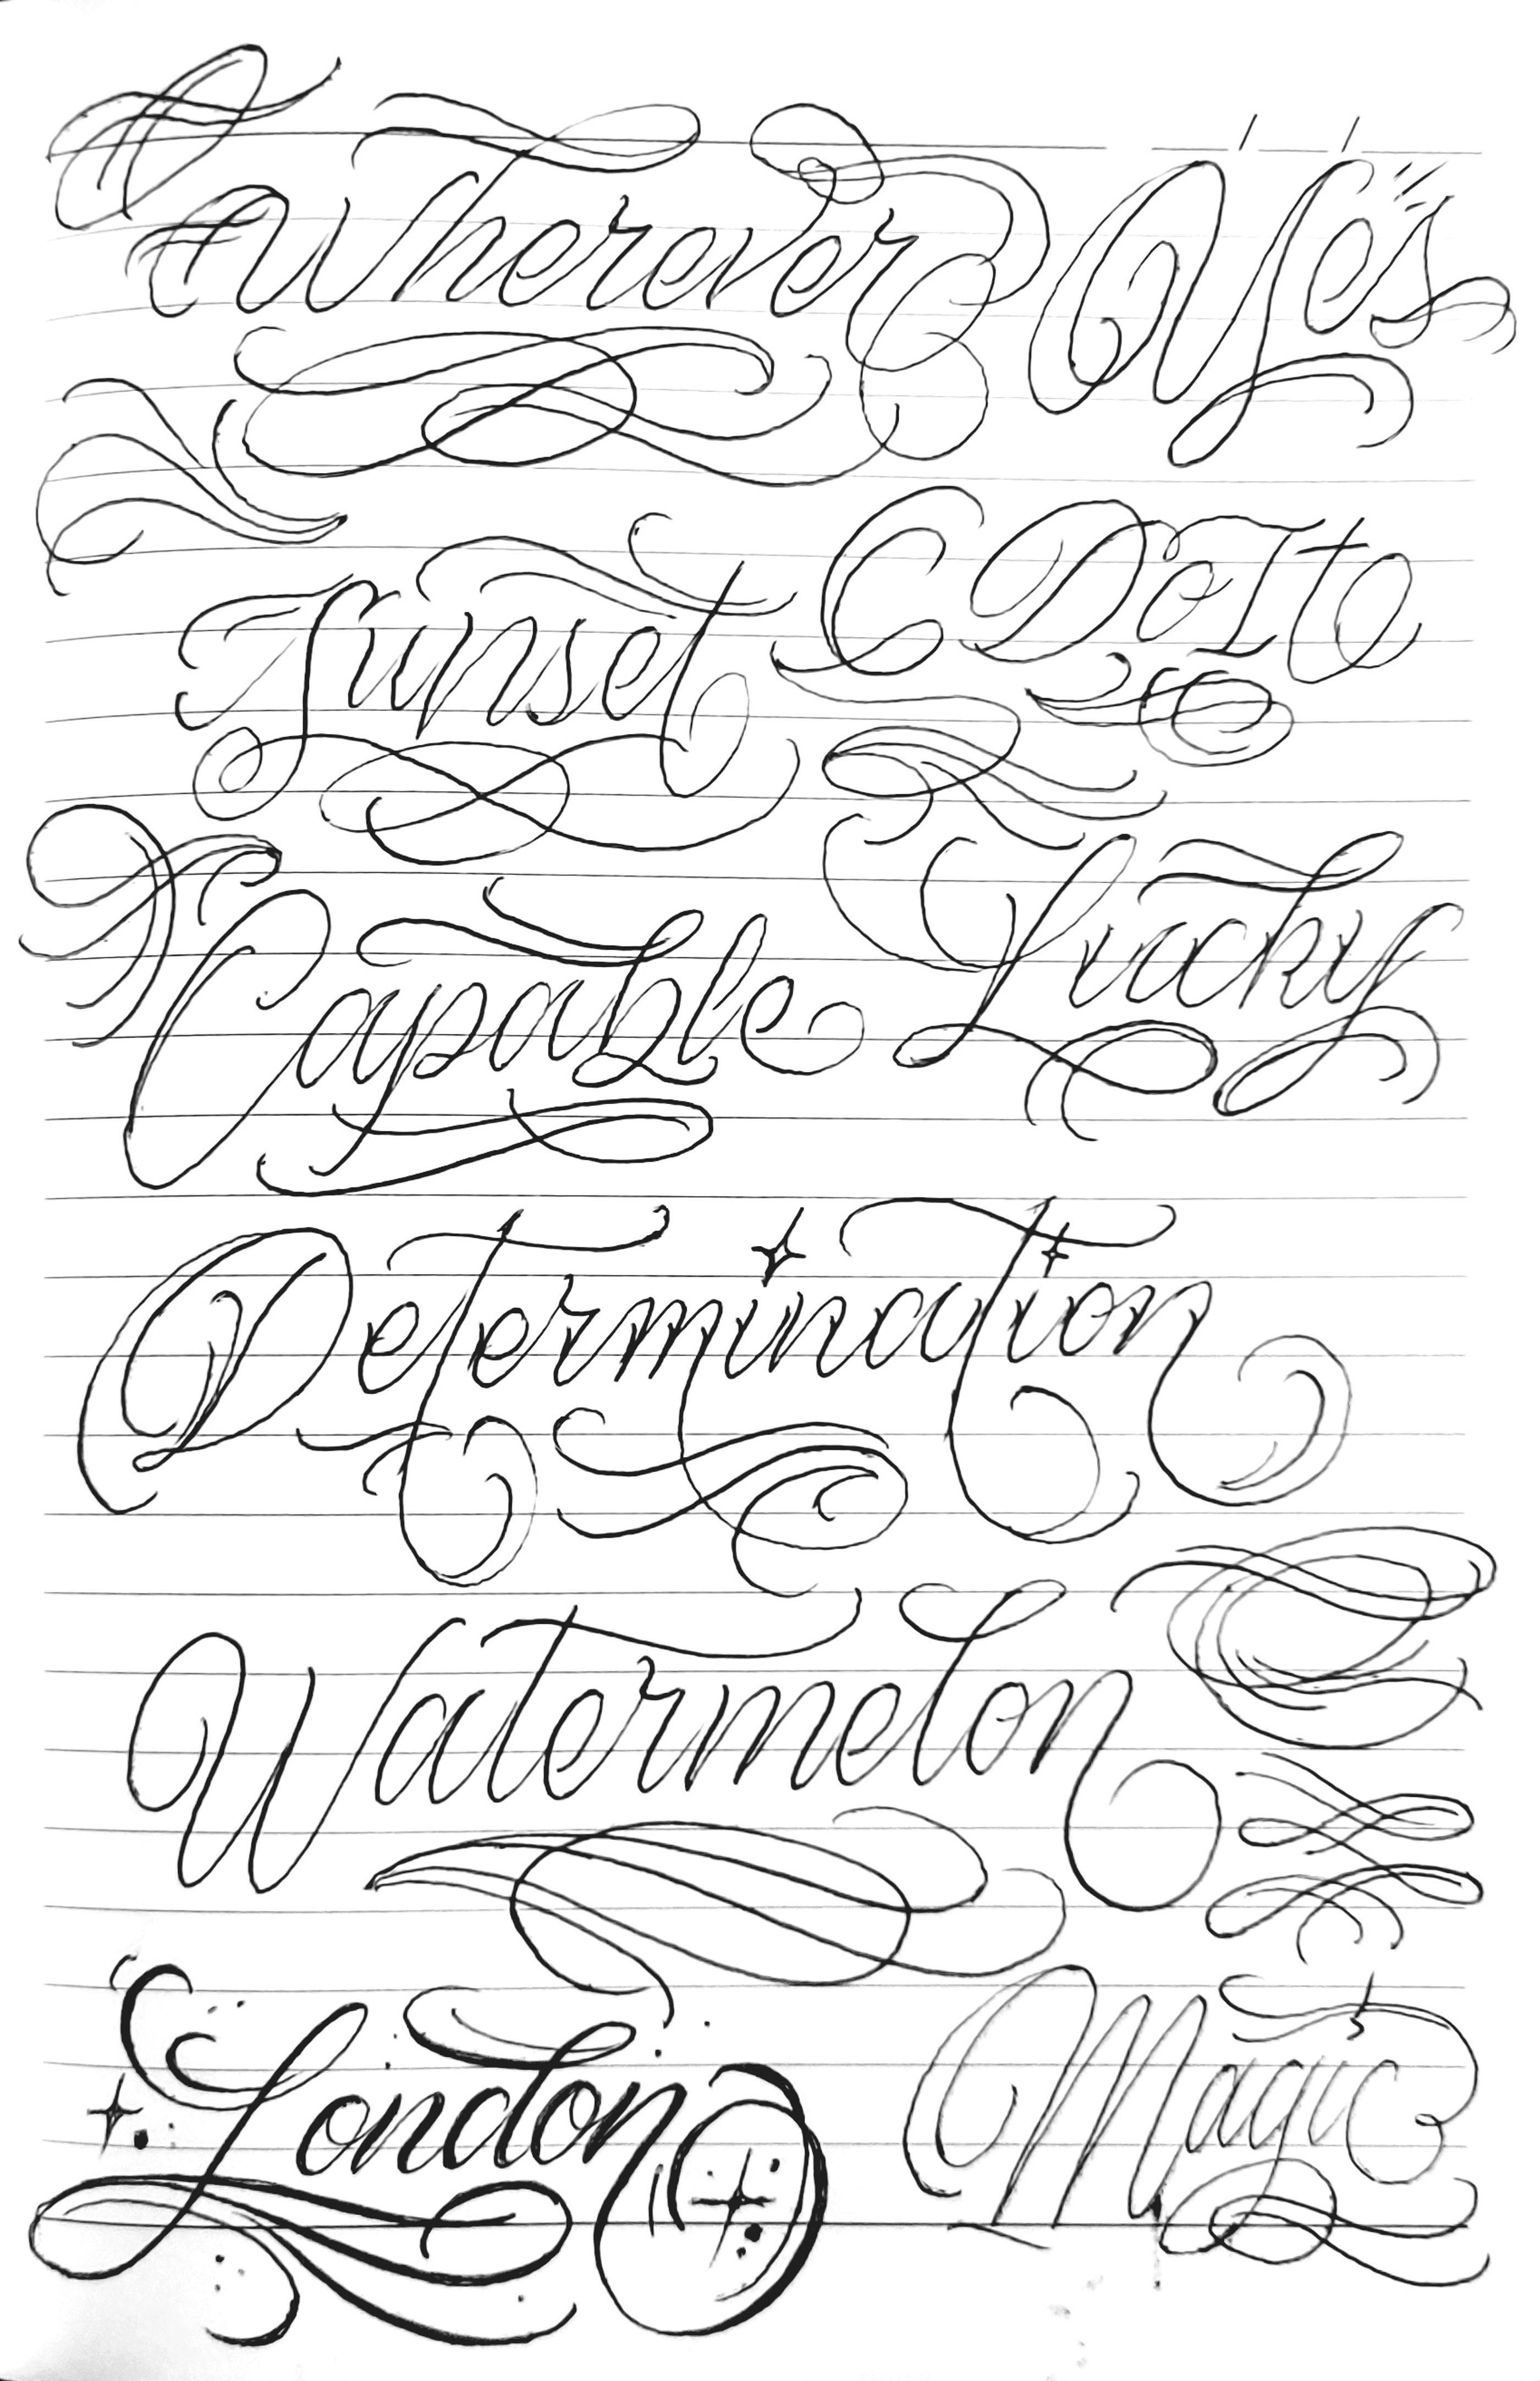 Wherever Yes
Sunset Do It
Capable Lucky
Determination
Watermelon
London Magic